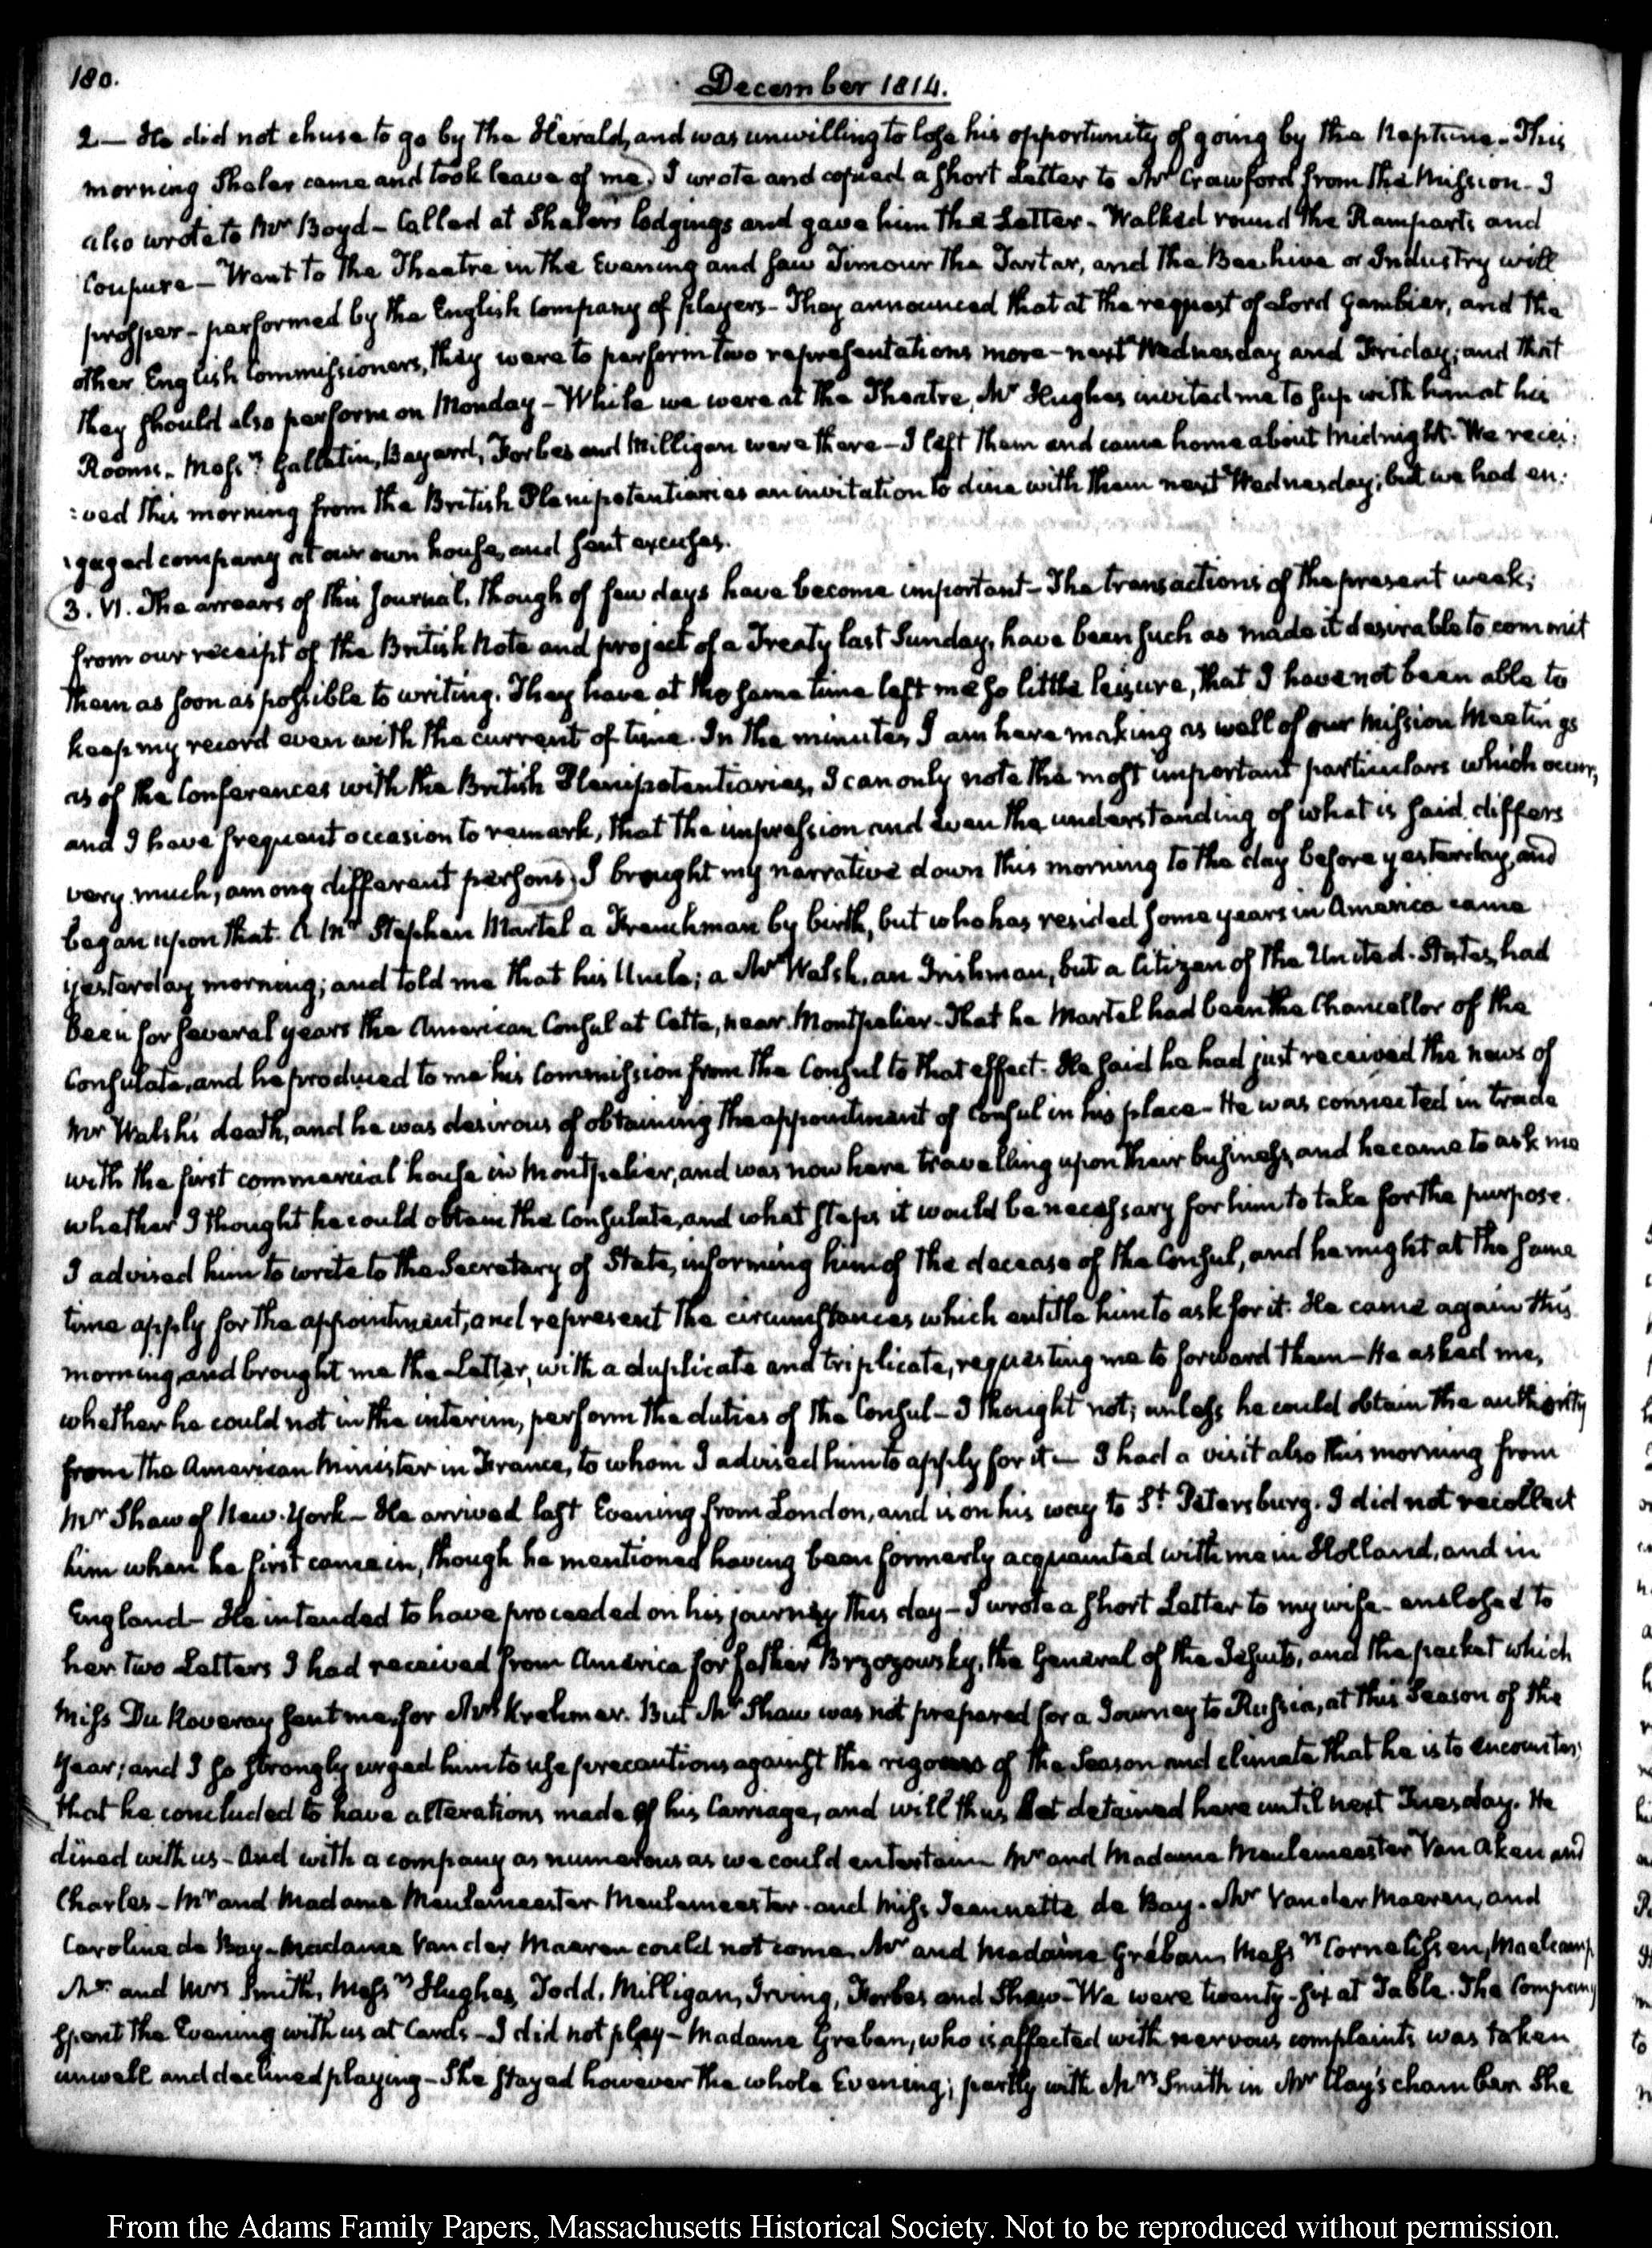 180.
December 1814.
2 — He did not chuse to go by the Herald, and was unwilling to lose his opportunity of going by the Neptune. This
morning Shaler came and took leave of me. I wrote and copied a short Letter to Mr Crawford from the Mission. I
also wrote to Mr Boyd — Called at Shaler's lodgings and gave him the Letter. Walked round the Ramparts and
Coupure — Went to the Theatre in the Evening and saw Timour the Tartar, and the Beehive or Industry will
prosper — performed by the English Company of players — They announced that at the request of Lord Gambier, and the
other English Commissioners, they were to perform two representations more — next Wednesday and Friday; and that
they should also perform on Monday — While we were at the Theatre, Mr Hughes invited me to sup with him at his
Rooms. Messrs Gallatin, Bayard, Forbes and Milligan were there — I left them and came home about Midnight. We recei:
:ved this morning from the British Plenipotentiaries an invitation to dine with them next Wednesday; but we had en:
:gaged company at our own house, and sent excuses.
3. VI. The arrears of this Journal, though of few days have become important — The transactions of the present week,
from our receipt of the British Note and project of a Treaty last Sunday, have been such as made it desirable to commit
them as soon as possible to writing. They have at the same time left me so little leizure, that I have not been able to
keep my record even with the current of time. In the minutes I am here making as well of our Mission Meetings
as of the Conferences with the British Plenipotentiaries, I can only note the most important particulars which occur,
and I have frequent occasion to remark, that the impression and even the understanding of what is said differs
very much, among different persons. I brought my narrative down this morning to the day before yesterday, and
began upon that. A Mr Stephen Martel a Frenchman by birth, but who has resided some years in America came
yesterday morning; and told me that his Uncle; a Mr Walsh, an Irishman, but a Citizen of the United States, had
been for several years the American Consul at Cette, near Montpelier. That he Martel had been the Chancellor of the
Consulate, and he produced to me his Commission from the Consul to that effect. He said he had just received the news of
Mr Walsh's death, and he was desirous of obtaining the appointment of Consul in his place — He was connected in trade
with the first commercial house in Montpelier, and was now here travelling upon their business, and he came to ask me
whether I thought he could obtain the Consulate, and what steps it would be necessary for him to take for the purpose.
I advised him to write to the Secretary of State, informing him of the decease of the Consul, and he might at the same
time apply for the appointment, and represent the circumstances which entitle him to ask for it. He came again this
morning, and brought me the Letter, with a duplicate and triplicate, requesting me to forward them — He asked me,
whether he could not in the interim, perform the duties of the Consul — I thought not; unless he could obtain the authority
from the American Minister in France, to whom I advised him to apply for it — I had a visit also this morning from
Mr Shaw of New-York — He arrived last Evening from London, and is on his way to St Petersburg. I did not recollect
him when he first came in, though he mentioned having been formerly acquainted with me in Holland, and in
England — He intended to have proceeded on his journey this day — I wrote a short Letter to my wife — enclosed to
her two Letters I had received from America for father Brzozowsky, the General of the Jesuits, and the packet which
Miss Du Roveray sent me, for Mrs Krehmer. But Mr Shaw was not prepared for a Journey to Russia, at this Season of the
Year; and I so strongly urged him to use precautions against the rigours of the Season and climate that he is to encounter,
that he concluded to have alterations made of his Carriage, and will thus be detained here until next Tuesday. He
dined with us — And with a company as numerous as we could entertain Mr and Madame Meulemeester Van Aken and
Charles — Mr and Madame Meulemeester Meulemeester — and Miss Jeannette de Bay. Mr Van der Maeren, and
Caroline de Bay — Madame Van der Maeren could not come. Mr and Madame Greban, Messrs Cornelissen, Maelcamp
Mr and Mrs Smith, Messrs Hughes, Todd, Milligan, Irving, Forbes and Shaw — We were twenty-six at Table. The Company
spent the Evening with us at Cards — I did not play — Madame Greban, who is affected with nervous complaints was taken
unwell and declined playing — She stayed however the whole Evening; partly with Mrs Smith in Mr Clay's chamber. She
From the Adams Family Papers, Massachusetts Historical Society. Not to be reproduced without permission.